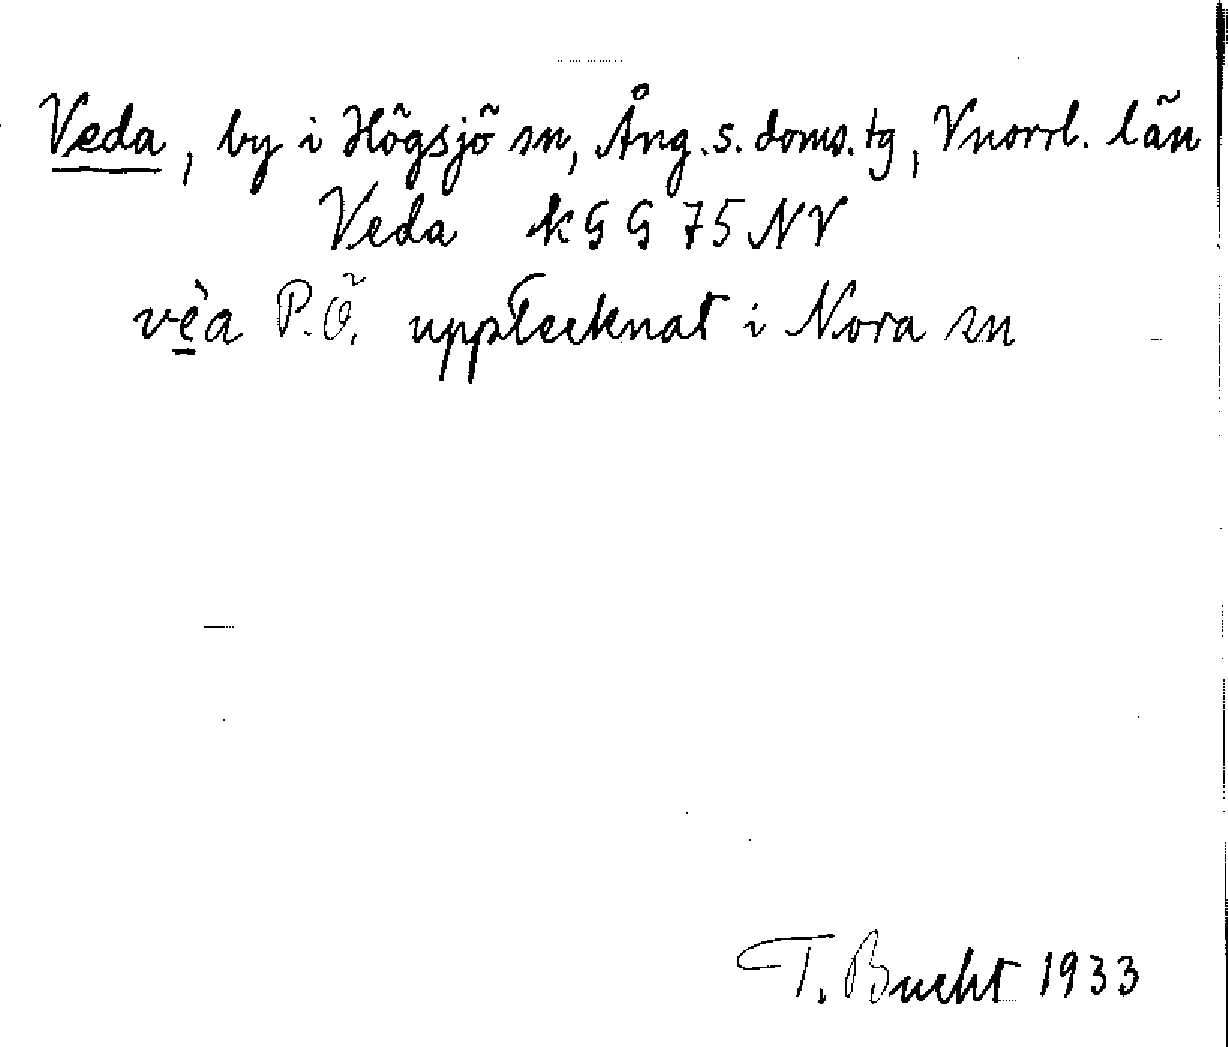 Veda, by i Högsjö sn, Ång.s.doms.tg, Vnorrl. län
Veda kGG 75 NV
vèa P.Ö. upptecknat i Nora sn
T. Bucht 1933